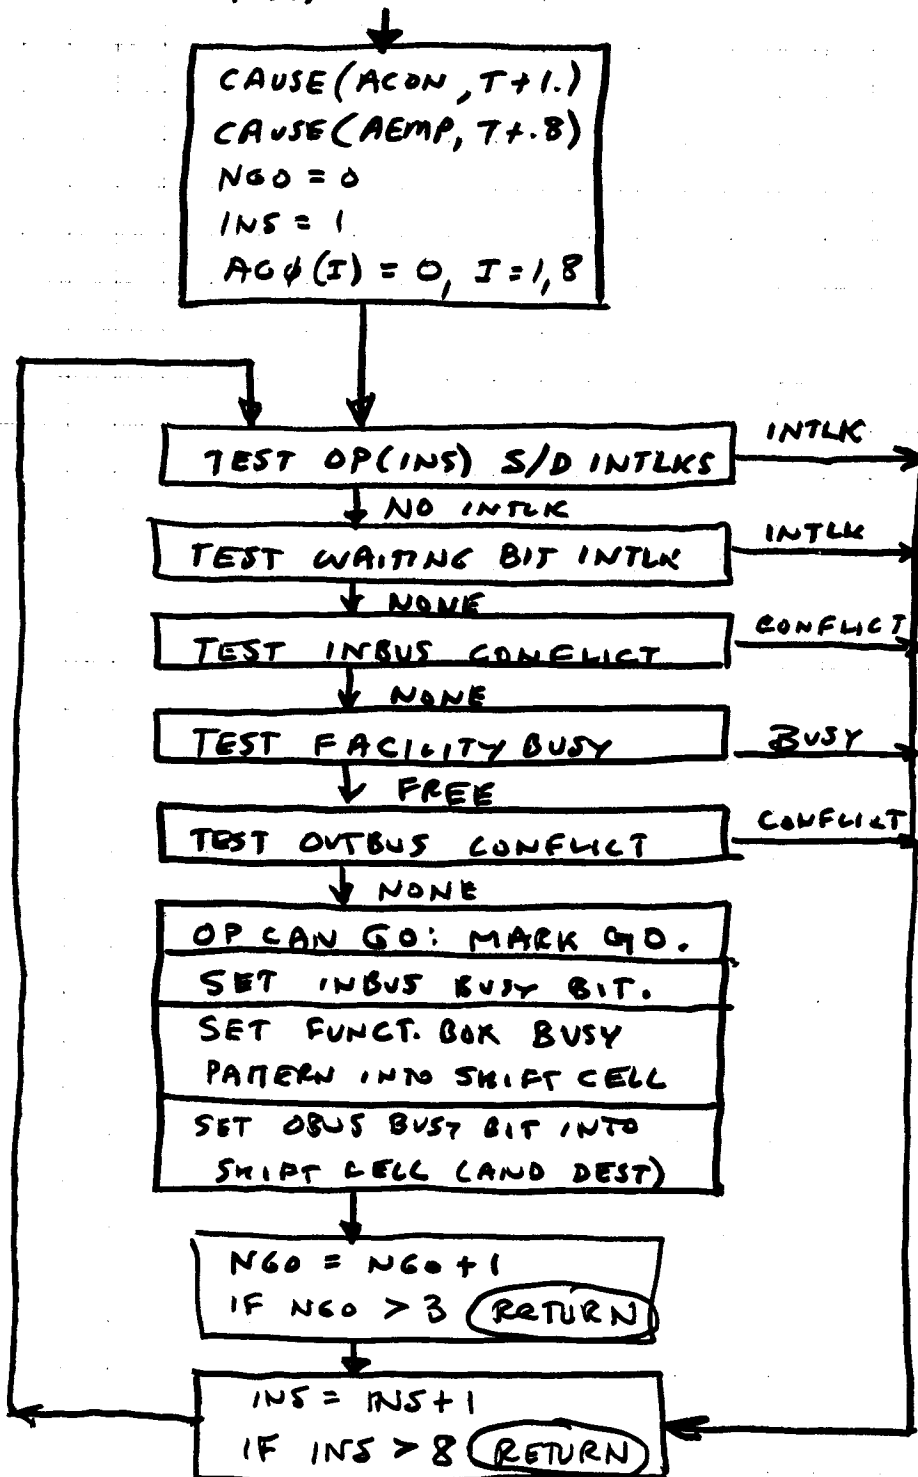 CAUSE(ACON, T+1.)
CAUSE(AEMP, T+.8)
NGO = 0
INS = 1
AGφ(I) = 0, I=1,8
TEST OP(INS) S/D INTLKS
INTLK
NO INTLK
TEST WAITING BIT INTLK
INTLK
NONE
TEST INBUS CONFLICT
CONFLICT
NONE
TEST FACILITY BUSY
BUSY
FREE
TEST OUTBUS CONFLICT
CONFLICT
NONE
OP CAN GO: MARK GO.
SET INBUS BUSY BIT.
SET FUNCT. BOX BUSY
PATTERN INTO SHIFT CELL
SET OBUS BUSY BIT INTO
SHIFT CELL (AND DEST)
NGO = NGO+1
IF NGO > 3 RETURN
INS = INS+1
IF INS > 8 RETURN